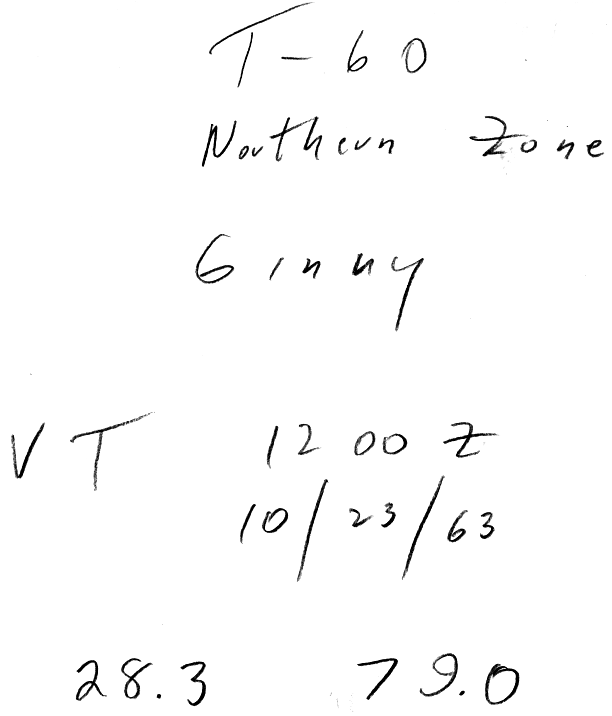 T-60
Northern Zone
Ginny
VT 1200 Z
10/23/63
28.3 79.0